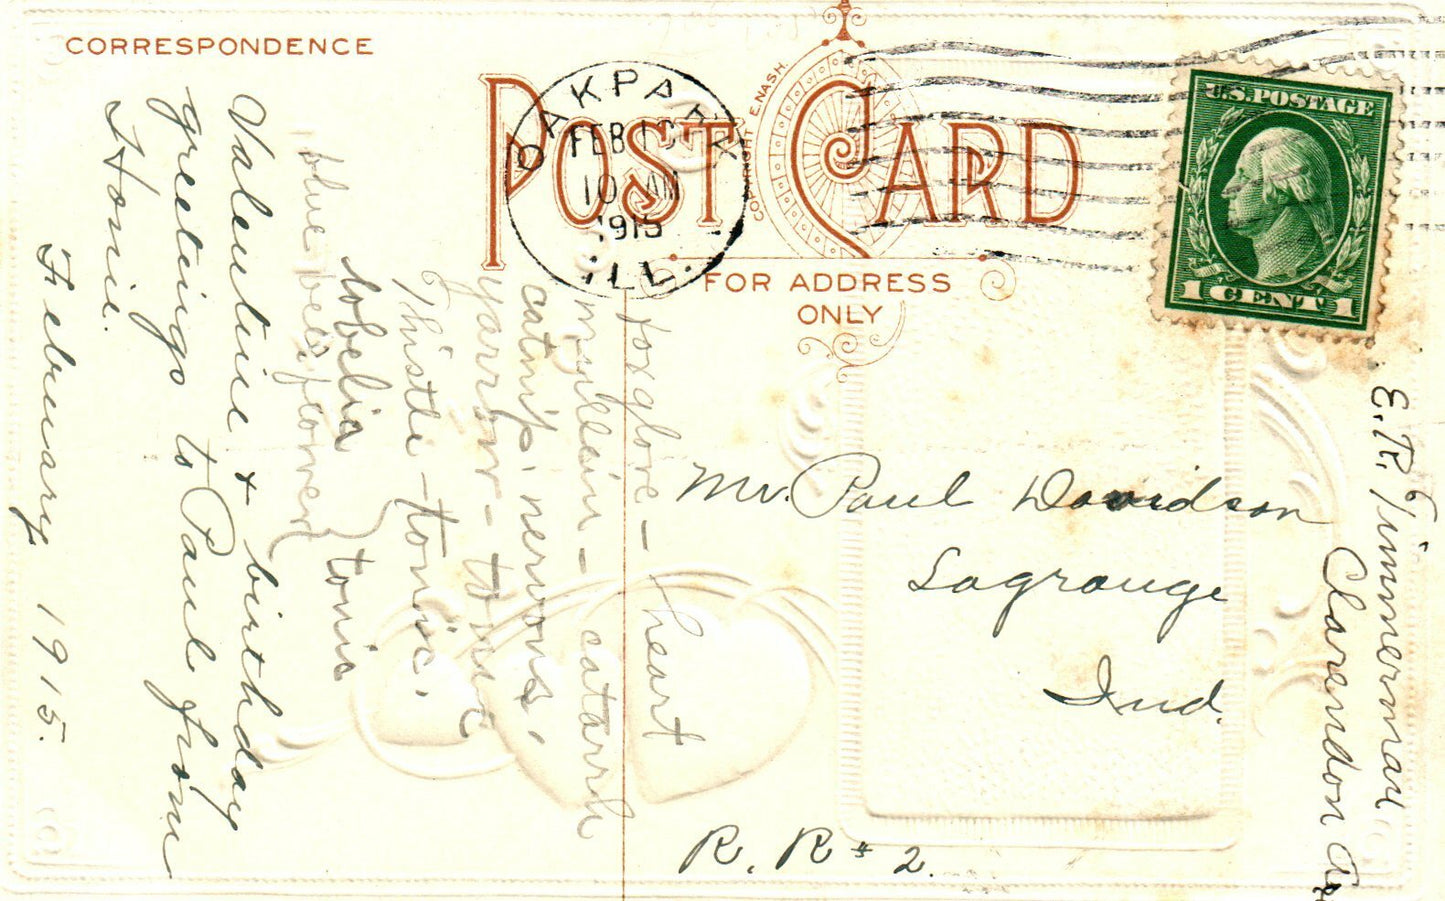 CORRESPONDENCE
POST CARD
COPYRIGHT E.NASH.
FOR ADDRESS
ONLY
OAK PARK
FEB
10 AM
1915
ILL.
U.S.POSTAGE
1 CENT 1
Valentine & birthday
greetings to Paul from
Honie.
February 1915.
foxglove - heart
mullein - catarrh
catnip. nervous.
yarrow - tonic
Thistle - tonic.
lobelia
blue bell flower } tonic
Mr. Paul Davidson
Lagrange
Ind.
R. R # 2.
E. R. Timmerman
Clarendon